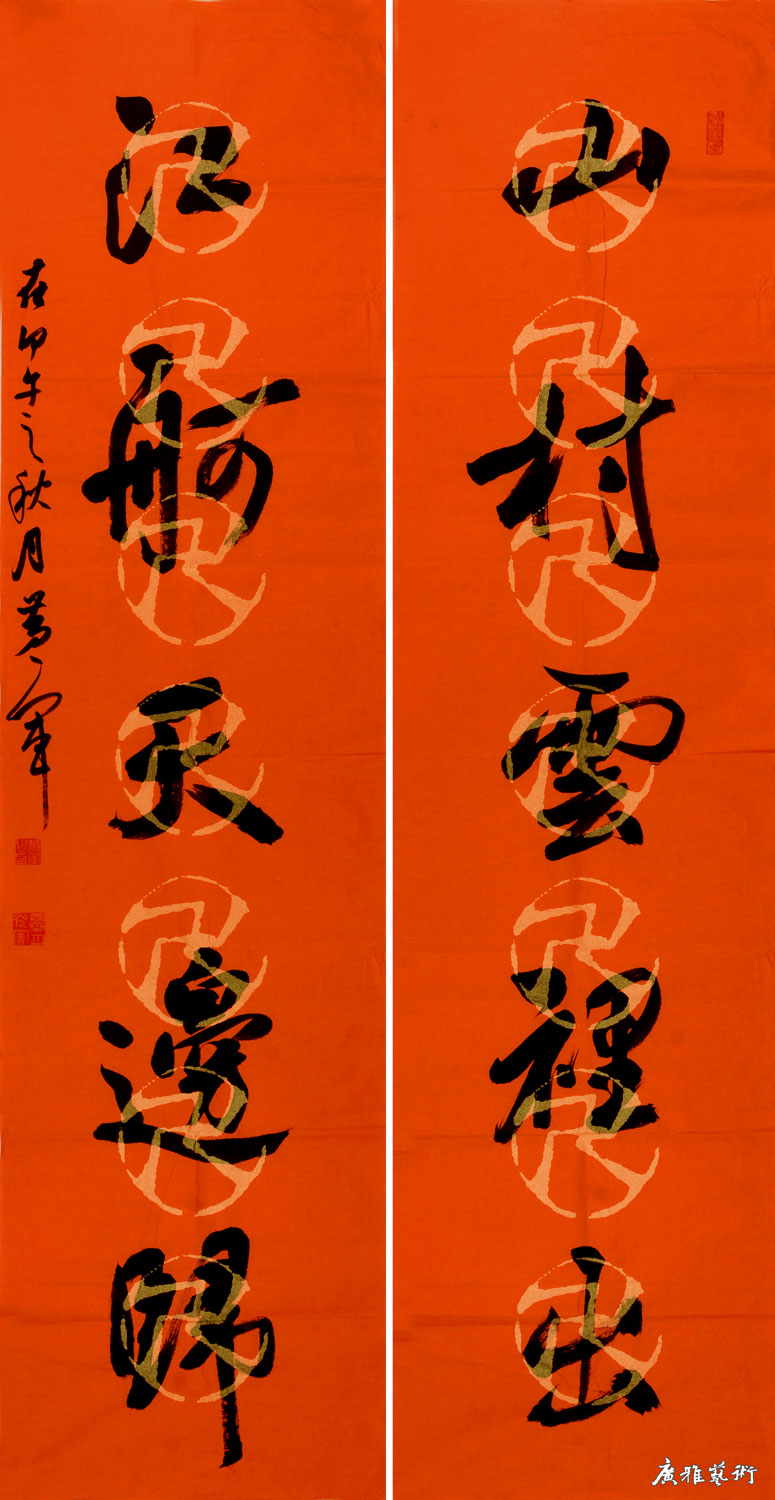 山村雲裡出
江舸天邊歸
午之秋月
廣雅藝術